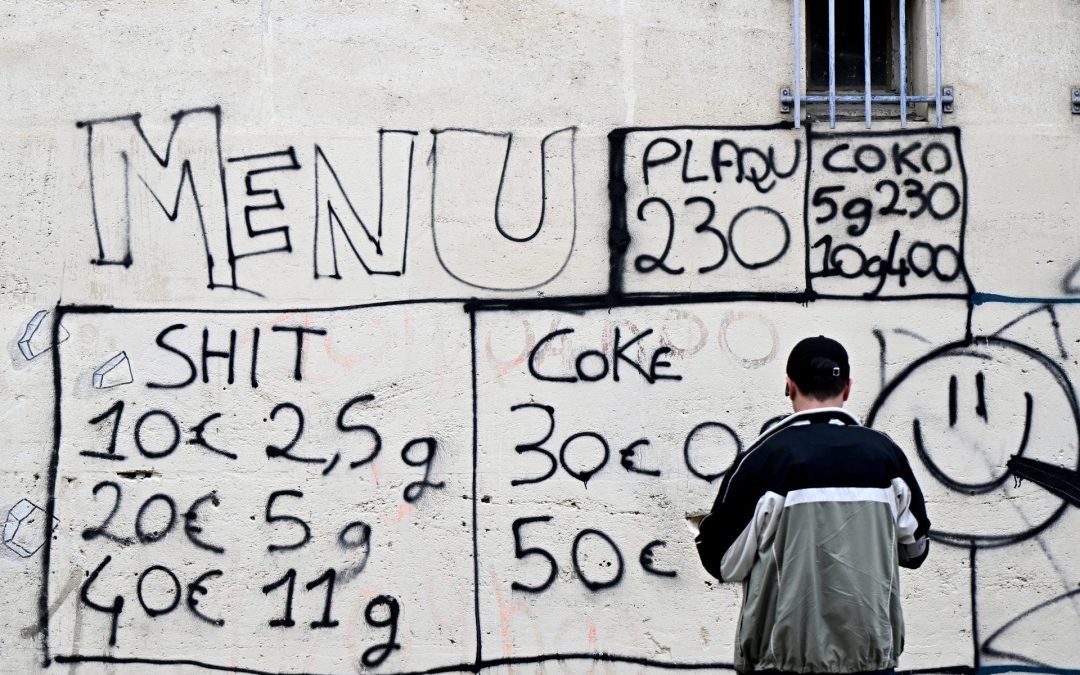 MENU
PLAQU
230
COKO
5g 230
10g 400
SHIT
10€ 2,5g
20€ 5g
40€ 11g
COKE
30€ 0
50€